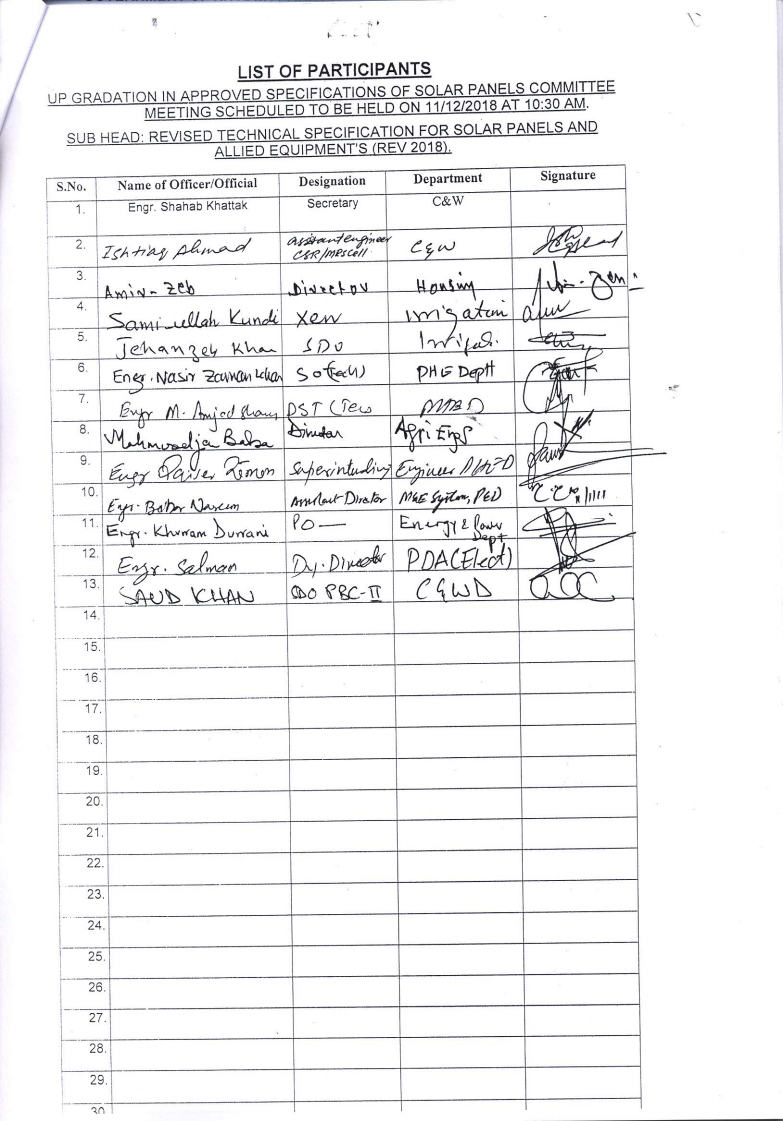 LIST OF PARTICIPANTS
UP GRADATION IN APPROVED SPECIFICATIONS OF SOLAR PANELS COMMITTEE
MEETING SCHEDULED TO BE HELD ON 11/12/2018 AT 10:30 AM.
SUB HEAD: REVISED TECHNICAL SPECIFICATION FOR SOLAR PANELS AND
ALLIED EQUIPMENT'S (REV 2018).
S.No. Name of Officer/Official Designation Department Signature
1. Engr. Shahab Khattak Secretary C&W
2. Ishtiaq Ahmad assistant engineer C&W
CSR/MRS Cell
3. Amir-Zeb Director Housing
4. Sami-ullah Kundi XEN Irrigation
5. Jehanzeb Khan SDO
6. Engr. Nasir Zaman Khan SO(Tech) PHE Deptt
7. Engr M. Amjad DST
8. Mahmood Jan Baba Director Agri Engg
9. Engr Qaiser Zaman Superintending Engineer
10. Engr. Babar Naseem Assistant Director M&E System, PED
11. Engr. Khurram Durrani PO — Energy & Power
Dept
12. Engr. Salman Dy. Director PDA(Elect)
13. SAUD KHAN SDO PBC-II C&WD
14.
15.
16.
17.
18.
19.
20.
21.
22.
23.
24.
25.
26.
27.
28.
29.
30